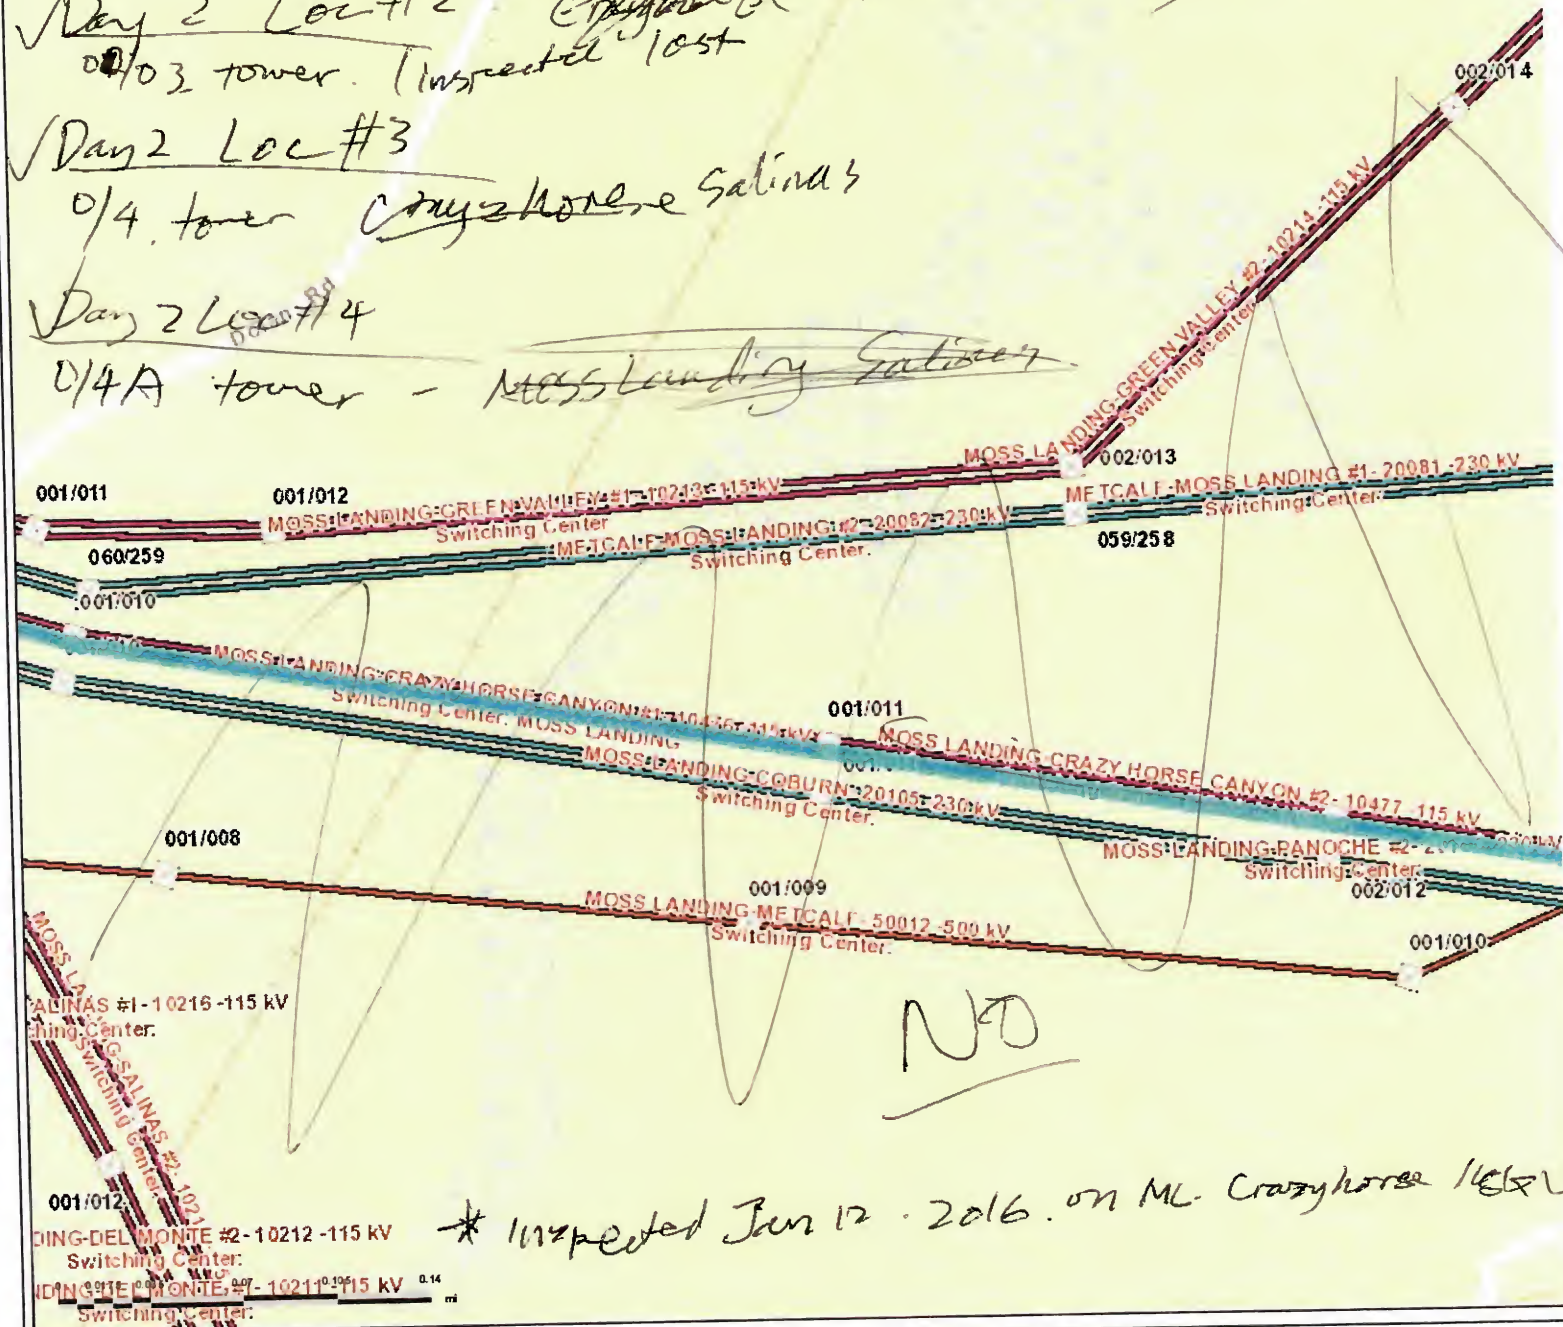 √ Day 2 Loc #2
/03 tower. (Inspected last
√ Day 2 Loc #3
0/4. tower Crazyhorse Salinas
√ Day 2 Loc #4
Dolan Rd
0/4A tower - Moss Landing Salinas
002/014
MOSS LANDING-GREEN VALLEY #2- 10214 -115 kV
Switching Center:
002/013
001/011
001/012
MOSS LANDING-GREEN VALLEY #1- 10213 -115 kV
Switching Center
METCALF-MOSS LANDING #1- 20081 -230 kV
Switching Center:
060/259
METCALF-MOSS LANDING #2- 20082 -230 kV
Switching Center:
059/258
001/010
MOSS LANDING-CRAZY HORSE CANYON #1- 10436 -115 kV
Switching Center: MOSS LANDING
001/011
MOSS LANDING-CRAZY HORSE CANYON #2- 10477 -115 kV
001/011
MOSS LANDING-COBURN- 20105 -230 kV
Switching Center:
MOSS LANDING-PANOCHE #2-
Switching Center:
002/012
001/008
001/009
MOSS LANDING-METCALF- 50012 -500 kV
Switching Center:
001/010
ALINAS #1- 10216 -115 kV
ching Center:
MOSS LANDING-SALINAS #2- 1021
Switching Center:
NO
001/012
DING-DEL MONTE #2- 10212 -115 kV
Switching Center:
* Inspected Jan 12. 2016. on ML. Crazyhorse 1&2
NDING-DEL MONTE #1- 10211 -115 kV
0.07 0.105 0.14
mi
Switching Center: